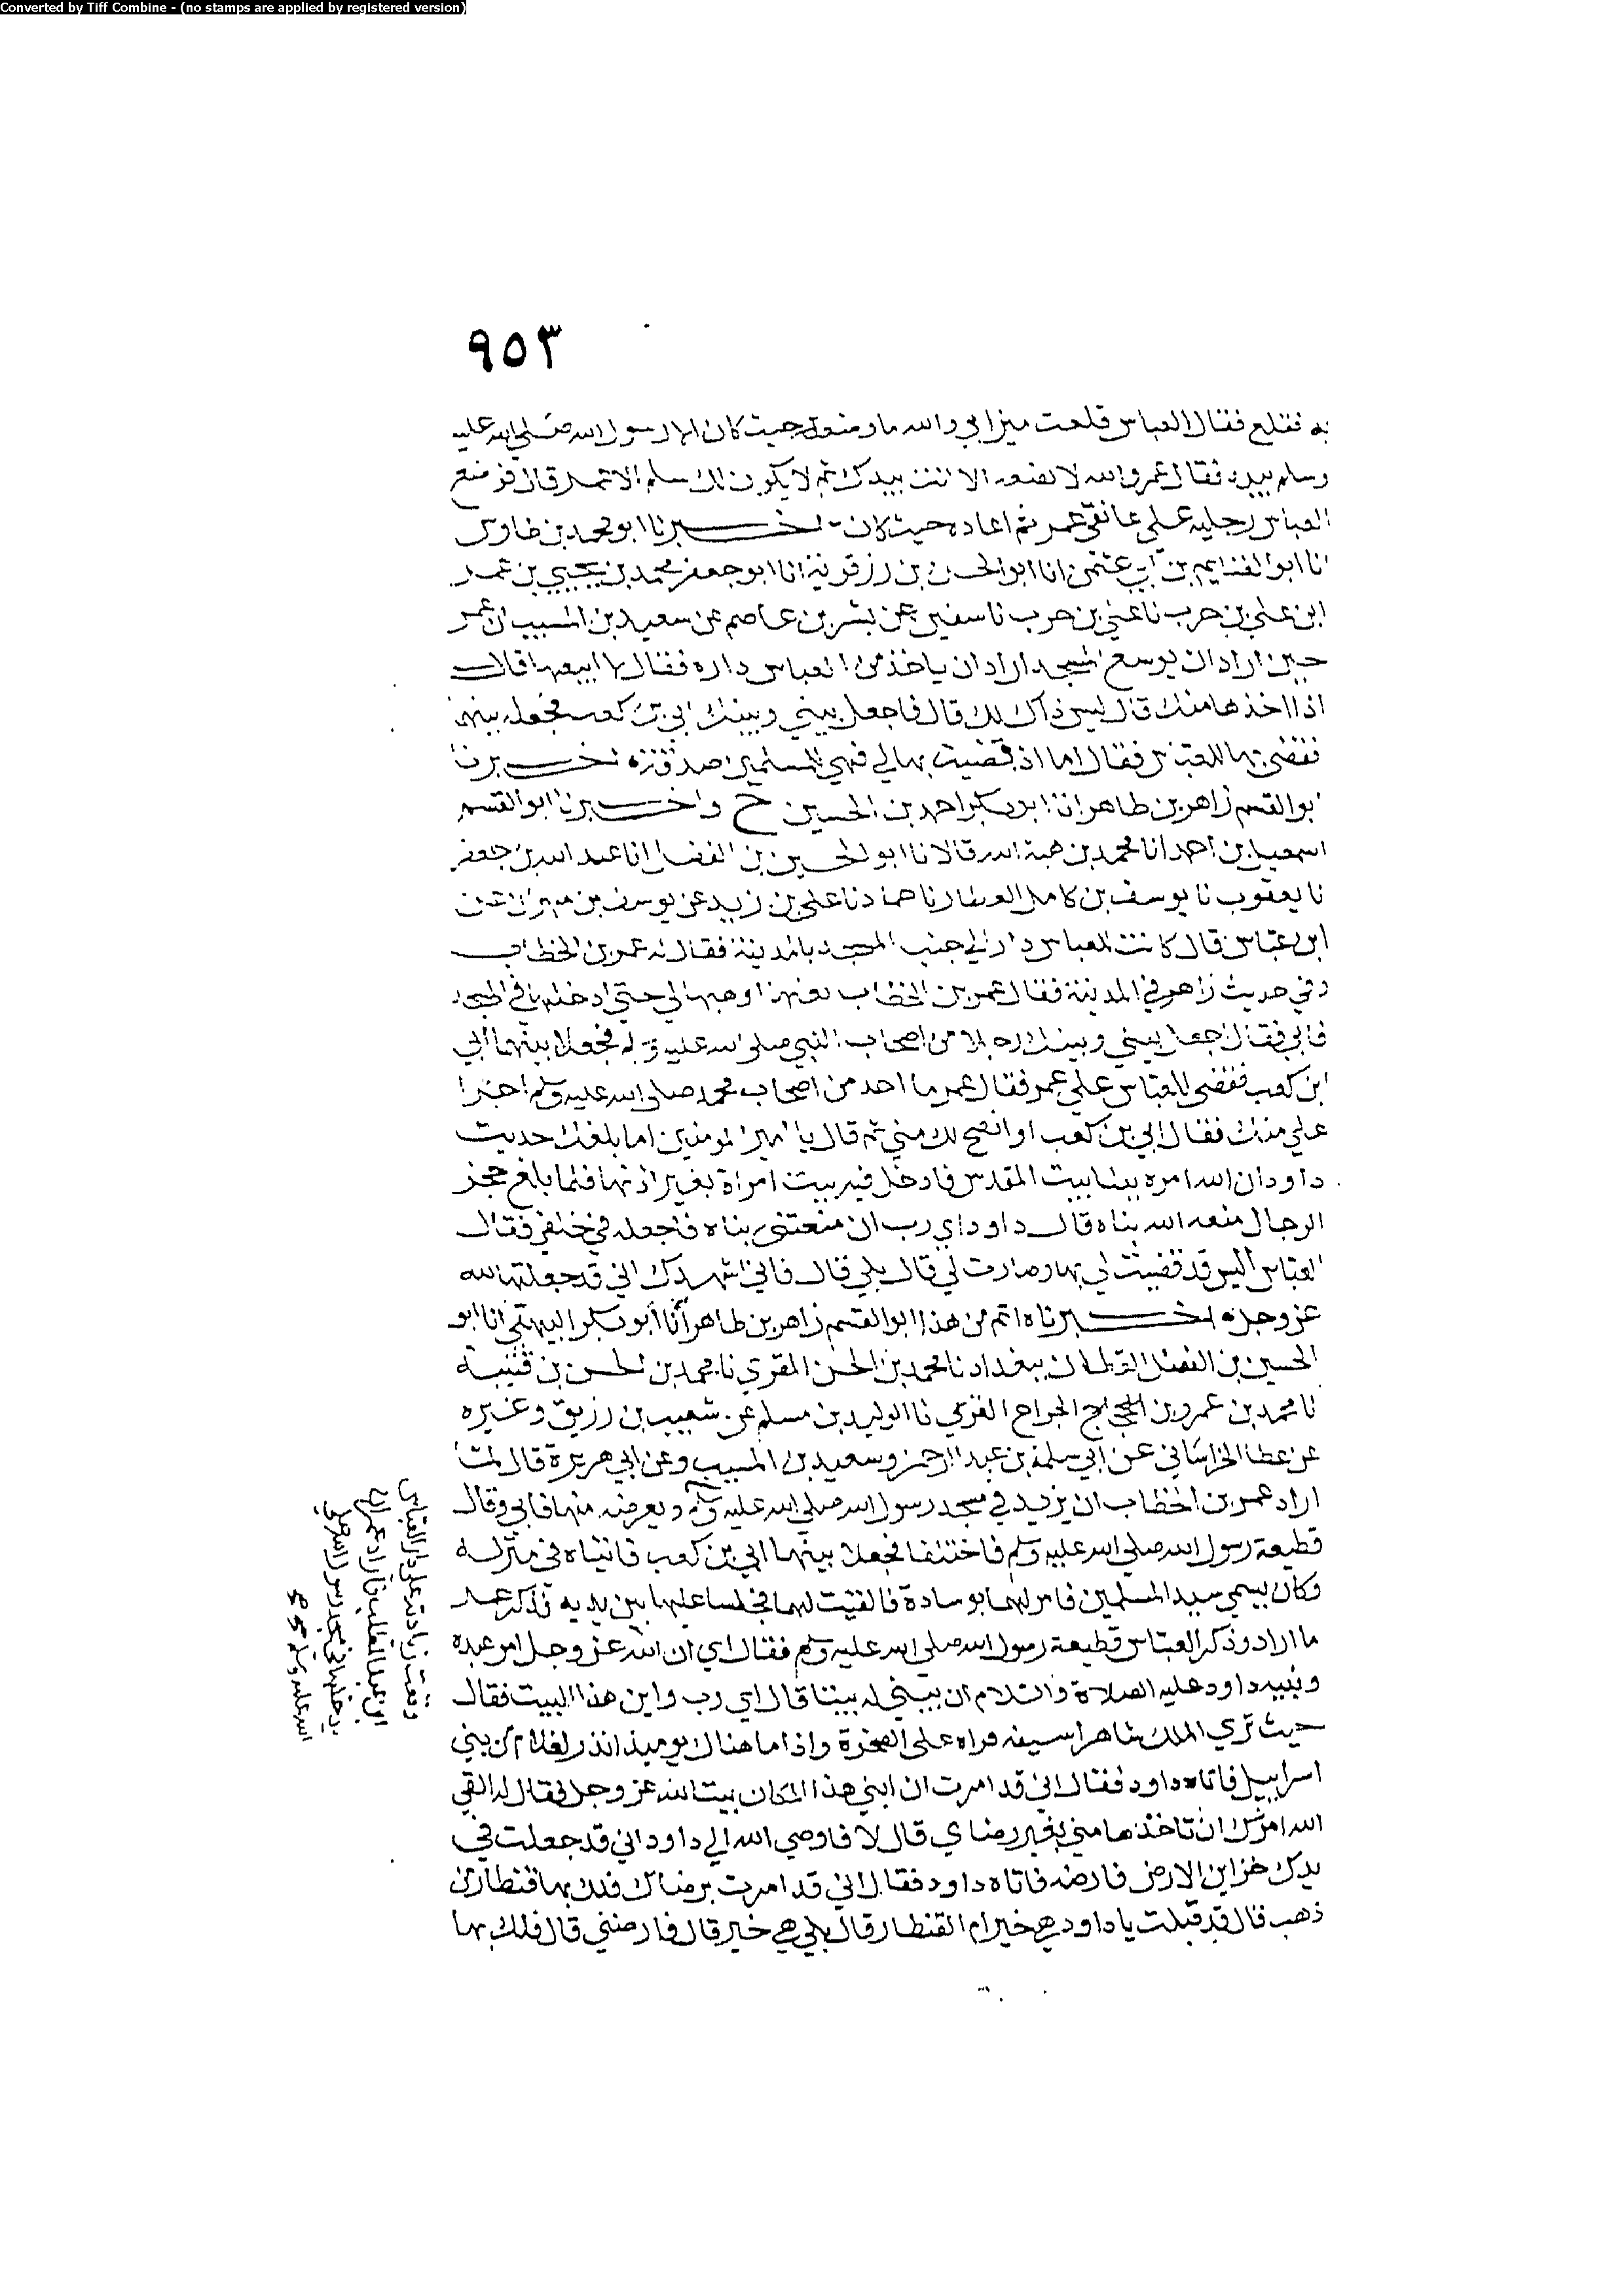 Converted by Tiff Combine - (no stamps are applied by registered version)
٩٥٣
به فقلع فقال العباس قلعت ميزابي والله ما وضعه حيث كان الا رسول الله صلى الله عليه
وسلم بيده فقال عمر والله لا تضعه الا انت بيدك ثم لا يكون لك سلم الا عمر قال فوضع
العباس رجليه على عاتقي عمر ثم اعاده حيث كان اخبرنا ابو محمد بن طاوس
انا ابو الغنايم بن ابي عثمن انا ابو الحسن بن رزقوية انا ابو جعفر محمد بن يحيي بن عمر
ابن علي بن حرب نا علي بن حرب نا سفين عن بشر بن عاصم عن سعيد بن المسيب ان عمر
حين اراد ان يوسع المسجد اراد ان ياخذ من العباس داره فقال لا ابيعها قال
اذا اخذها منك قال ليس ذاك لك قال فاجعل بيني وبينك ابي بن كعب فجعله بينهما
فقضى بها للعباس فقال اما اذ قضيت بها لي فهي للمسلمين صدقة اخبرنا
ابو القسم زاهر بن طاهر انا ابو بكر احمد بن الحسين ح واخبرنا ابو القسم
اسمعيل بن احمد انا محمد بن هبة الله قالا انا ابو الحسين بن الفضل انا عبد الله بن جعفر
نا يعقوب نا يوسف بن كامل العطار نا حماد نا علي بن زيد عن يوسف بن مهران عن
ابن عباس قال كانت للعباس دار الي جنب المسجد بالمدينة فقال له عمر بن الخطاب
وفي حديث زاهر في المدينة فقال عمر بن الخطاب بعنيها او هبها لي حتى ادخلها في المسجد
فابي فقال اجعل بيني وبينك رجلا من اصحاب النبي صلى الله عليه وسلم فجعلا بينهما ابي
ابن كعب فقضى للعباس علي عمر فقال عمر ما احد من اصحاب محمد صلى الله عليه وسلم اجترا
علي منك فقال ابي بن كعب او انصح لك مني ثم قال يا امير المومنين اما بلغك حديث
داود ان الله امره ببنا بيت المقدس فادخل فيه بيت امراة بغير اذنها فلما بلغ حجز
الرجال منعه الله بناه قال داود اي رب ان منعتني بناه فاجعله في خلفي فقال
العباس اليس قد قضيت لي بها وصارت لي قال بلي قال فاني اشهدك اني قد جعلتها لله
عز وجل اخبرناه اتم من هذا ابو القسم زاهر بن طاهر انا ابو بكر البيهقي انا ابو
الحسين بن الفضل القطان ببغداد نا محمد بن الحسن المقري نا محمد بن الحسن بن قتيبة
نا محمد بن عمرو بن الجراح الغزي نا الوليد بن مسلم عن شعيب بن رزيق وغيره
عن عطا الخراساني عن ابي سلمة بن عبد الرحمن وسعيد بن المسيب وعن ابي هريرة قال لما
اراد عمر بن الخطاب ان يزيد في مسجد رسول الله صلى الله عليه وسلم
قطيعة رسول الله صلى الله عليه وسلم فاختلفا فجعلا بينهما ابي بن كعب فاتياه في منزله
وكان يسمي سيد المسلمين فامر لهما بوسادة فالقيت لهما فجلسا عليها بين يديه فذكر عمر
ما اراد وذكر العباس قطيعة رسول الله صلى الله عليه وسلم فقال ابي ان الله عز وجل امر عبده
ونبيه داود عليه الصلاة والسلام ان يبني له بيتا قال اي رب واين هذا البيت فقال
حيث تري الملك شاهرا سيفه فراه على الصخرة واذا ما هناك يوميذ اندر لغلام من بني
اسراييل فاتاه داود فقال اني قد امرت ان ابني هذا المكان بيتا لله عز وجل فقال له الفتي
الله امرك ان تاخذها مني بغير رضاي قال لا فاوحي الله الي داود اني قد جعلت في
يدك خزاين الارض فارضه فاتاه داود فقال اني قد امرت برضاك فلك بها قنطار من
ذهب قال قد قبلت يا داود هي خير ام القنطار قال بلي هي خير قال فارضني قال فلك بها
وقعت زيادته على دار العباس
بن عبد المطلب فاراد عمر ان
يدخلها في مسجد رسول الله صلى
الله عليه وسلم